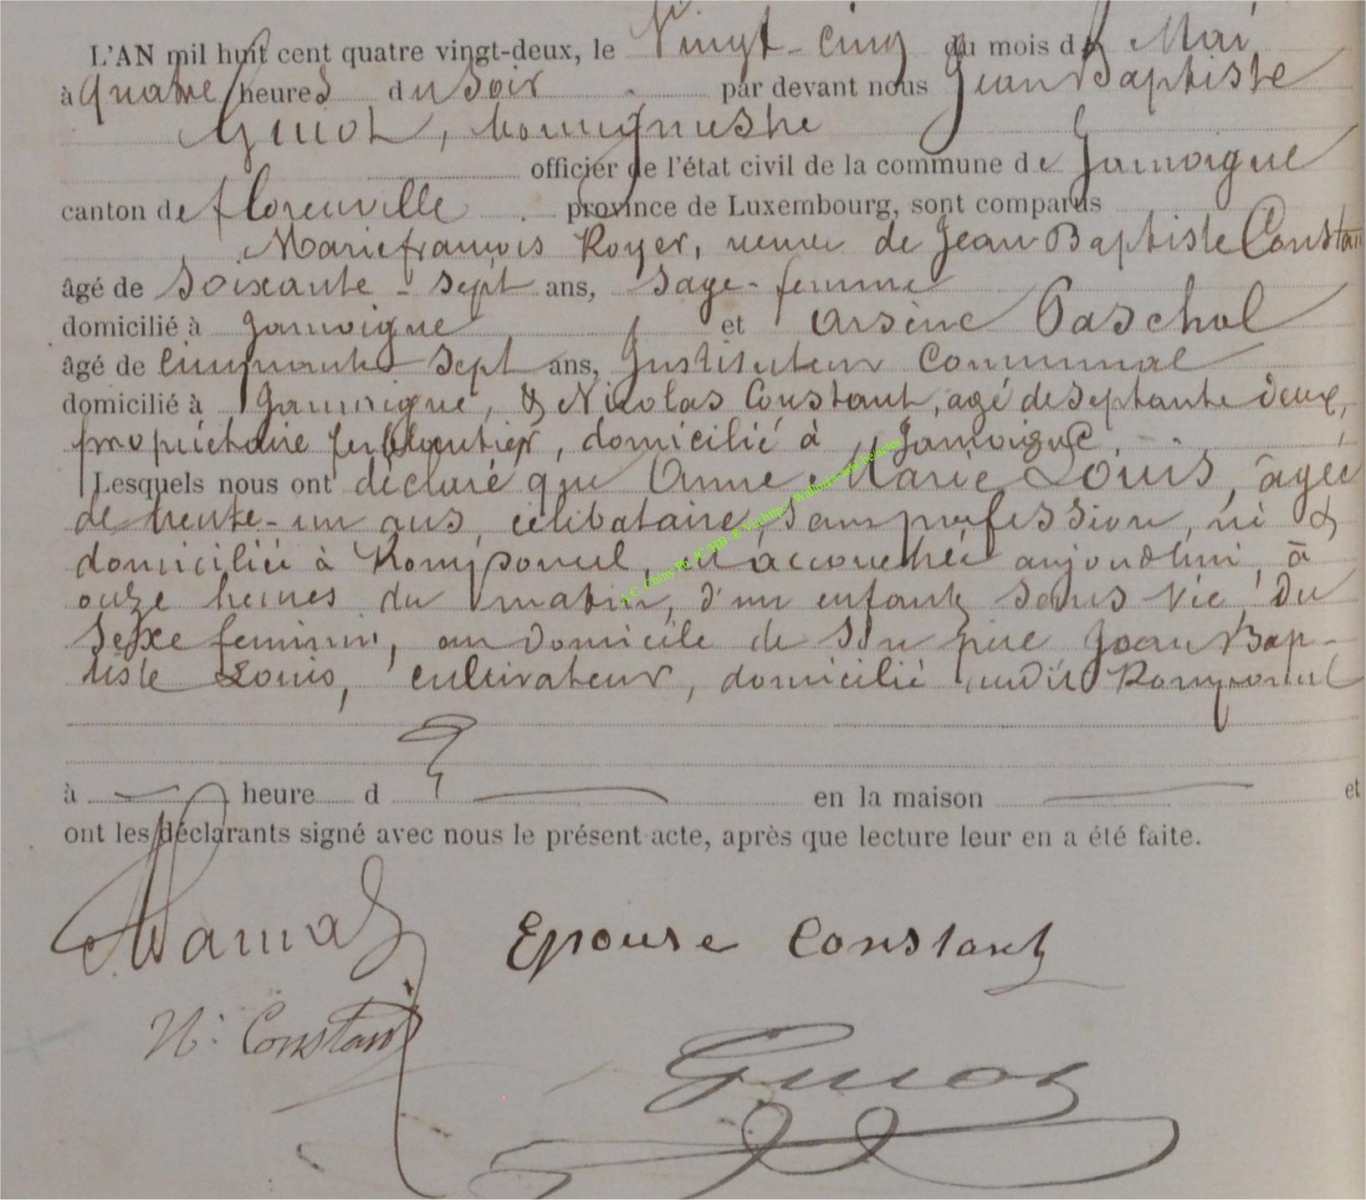 L'AN mil huit cent quatre vingt-deux, le Vingt-Cinq du mois de Mai
à quatre heures du Soir par devant nous Jean Baptiste
Guiot, bourgmestre
officier de l'état civil de la commune de Jamoigne
canton de florenville province de Luxembourg, sont comparus
Marie françois Royer, veuve de Jean Baptiste Constant
âgé de Soixante-Sept ans, Sage-femme
domicilié à Jamoigne et Arsène Paschal
âgé de Cinquante Sept ans, Instituteur Communal
domicilié à Jamoigne, & Nicolas Constant, agé de septante deux,
propriétaire, domicilié à Jamoigne,
Lesquels nous ont déclaré que Anne Marie Louis, âgée
de trente-un ans, célibataire, Sans profession, né &
domiciliée à Romponcel, est accouchée aujourdhui, à
onze heures du matin, d'un enfant sans Vie, Du
Sexe feminin, au domicile de Son père Jean Bap-
tiste Louis, cultivateur, domicilié audit Romponcel
à heure d en la maison et
ont les déclarants signé avec nous le présent acte, après que lecture leur en a été faite.
Epouse Constant
N: Constant
Guiot